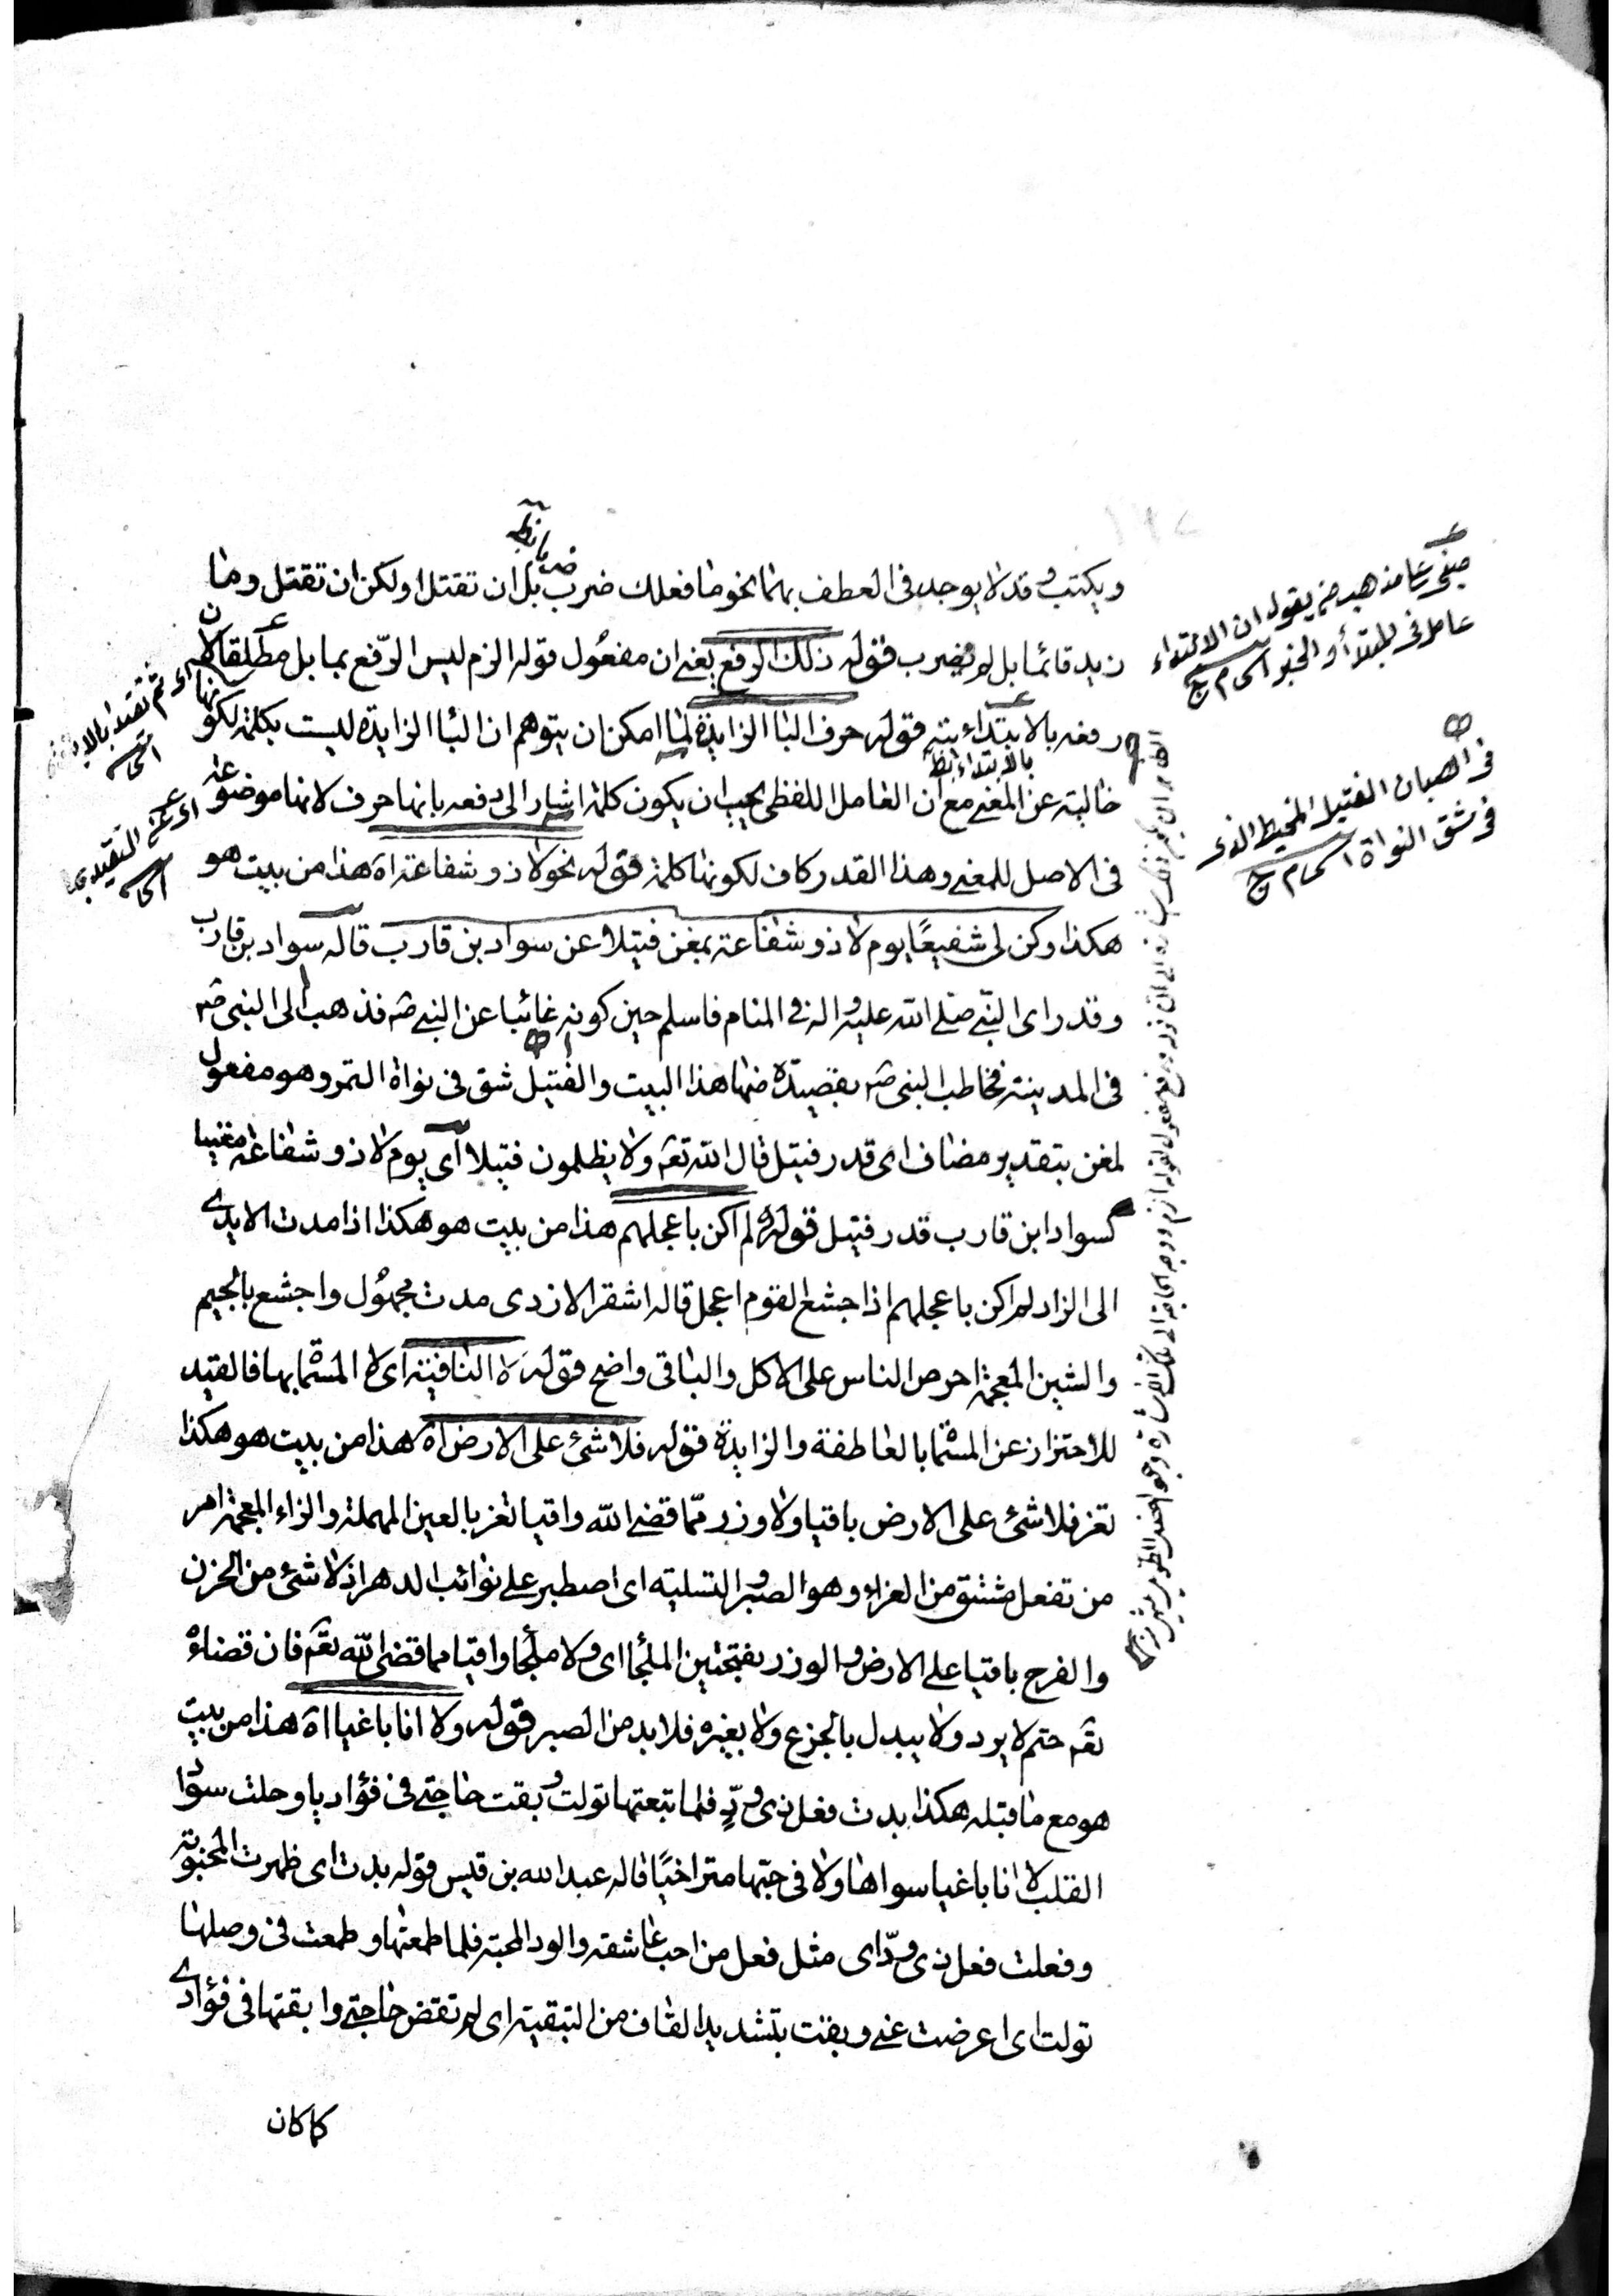 ويكتب وقد لا يوجد فى العطف بهما نحو ما فعلك ضرب بل ان تقتل او لكن ان تقتل وما
زيد قائما بل لم يضرب قوله ذلك الرفع يعنى ان مفعول قوله الزم ليس الرفع بما بل مطلقا لان
رفعه بالابتدائيته قوله حرف البا الزايدة لما امكن ان يتوهم ان البا الزايدة ليست بكلمة لكونها
خالية عن المعنى مع ان العامل اللفظى يجب ان يكون كلمة اشار الى دفعه بانها حرف لانها موضوعة
فى الاصل للمعنى وهذا القدر كاف لكونها كلمة قوله نحو لا ذو شفاعة اه هذا من بيت هو
هكذا وكن لى شفيعًا يوم لا ذو شفاعة بمغن فتيلا عن سواد بن قارب قاله سواد بن قارب
وقد راى النبى صلى الله عليه واله فى المنام فاسلم حين كونه غائبا عن النبى صم فذهب الى النبى صم
فى المدينة فخاطب النبى صم بقصيدة منها هذا البيت والفتيل شق فى نواة التمر وهو مفعول
لمغن بتقدير مضاف اى قدر فتيل قال الله تعم ولا يظلمون فتيلا اى يوم لا ذو شفاعة مغنيا
لسواد ابن قارب قدر فتيل قوله لم اكن باعجلهم هذا من بيت هو هكذا اذا مدت الايدى
الى الزاد لم اكن باعجلهم اذا جشع القوم اعجل قاله اشقر الازدى مدت مجهول واجشع بالجيم
والشين المعجمة احرص الناس على الاكل والباقى واضح قوله لا النافية اى لا المسمّا بها فالقيد
للاحتراز عن المسمّا بالعاطفة والزايدة قوله فلا شئ على الارض اه هذا من بيت هو هكذا
تعز فلا شئ على الارض باقيا ولا وزر ممّا قضى الله واقيا تعز بالعين المهملة والزاء المعجمة امر
من تفعل مشتق من العزاء وهو الصبر والتسلية اى اصطبر على نوائب الدهر اذ لا شئ من الحزن
والفرج باقيا على الارض والوزر بفتحتين الملجأ اى ولا ملجأ واقيا مما قضى الله تعم فان قضاءه
تعم حتم لا يرد ولا يبدل بالجزع ولا بغيره فلا بد من الصبر قوله ولا انا باغيا اه هذا من بيت
هو مع ما قبله هكذا بدت فعل ذى ودٍّ فلما تبعتها تولت وبقت حاجتى فى فؤاديا وحلت سواد
القلب لا انا باغيا سواها ولا فى حبها متراخيًا قاله عبد الله بن قيس قوله بدت اى ظهرت المحبوبة
وفعلت فعل ذى ودّ اى مثل فعل من احب عاشقه والود المحبة فلما طمعتها وطمعت فى وصلها
تولت اى اعرضت عنى وبقت بتشديد القاف من التبقية اى لم تقض حاجتى وابقتها فى فؤادى
كما كان
مبنى على مذهب من يقول ان الابتداء
عامل فى المبتدأ والخبر
فى الصبان الفتيل الخيط الذى
فى شق النواة